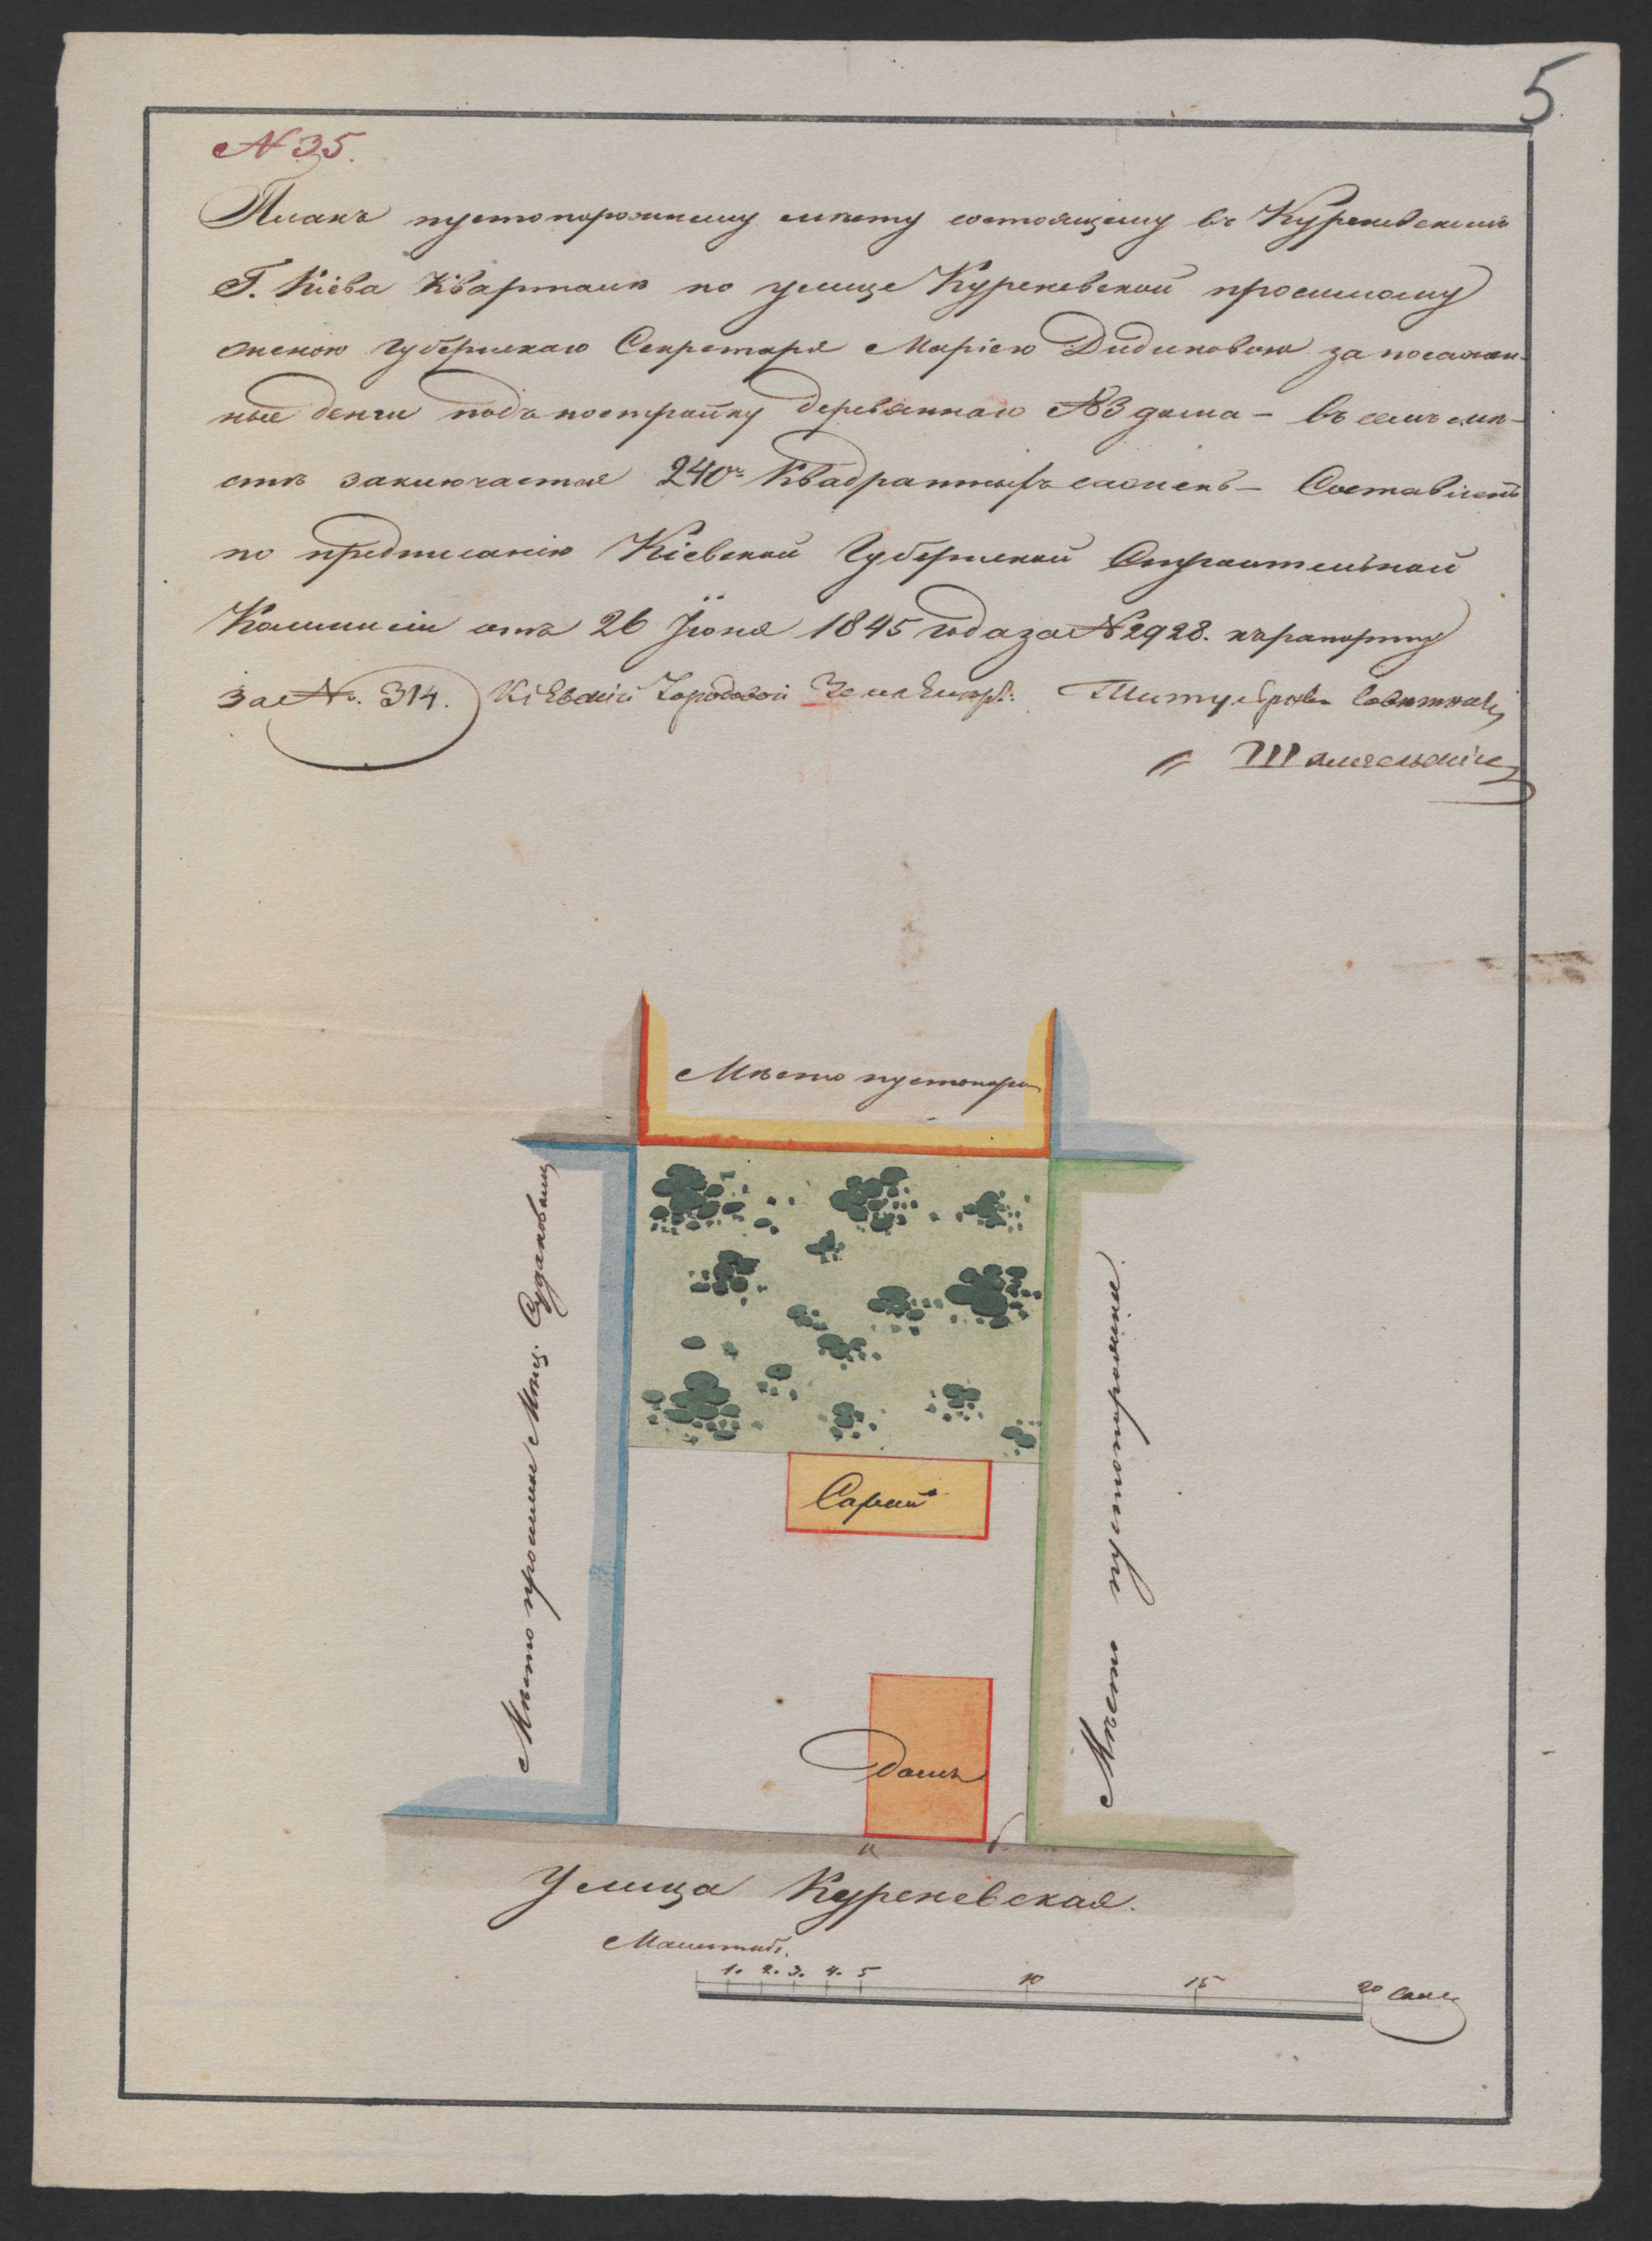 5
№ 35.
Планъ пустопорожнему мѣсту состоящему въ Куреневскомъ
Г. Кіева Кварталѣ по улице Куреневской просимому
женою Губернскаго Секретаря Маріею Дидиковою за посажен-
ные денги подъ постройку деревяннаго №3 дома – въ семъ мѣ-
стѣ заключается 240 Квадратныхъ сажень – Составленъ
по предписанію Кіевской Губернской Строительной
Коммисіи отъ 26 Іюня 1845 года за №2928. къ рапорту
за №. 314. Кіевскій Городовой Землемѣръ: Титулярный Совѣтникъ
Мѣсто пустопорож
Мѣсто просимое Мѣщ. Судаковымъ
Мѣсто пустопорожнее.
Сарай
домъ
а
б.
Улица Куреневская.
Масштабъ.
1. 2. 3. 4. 5 10 15 20 Саж